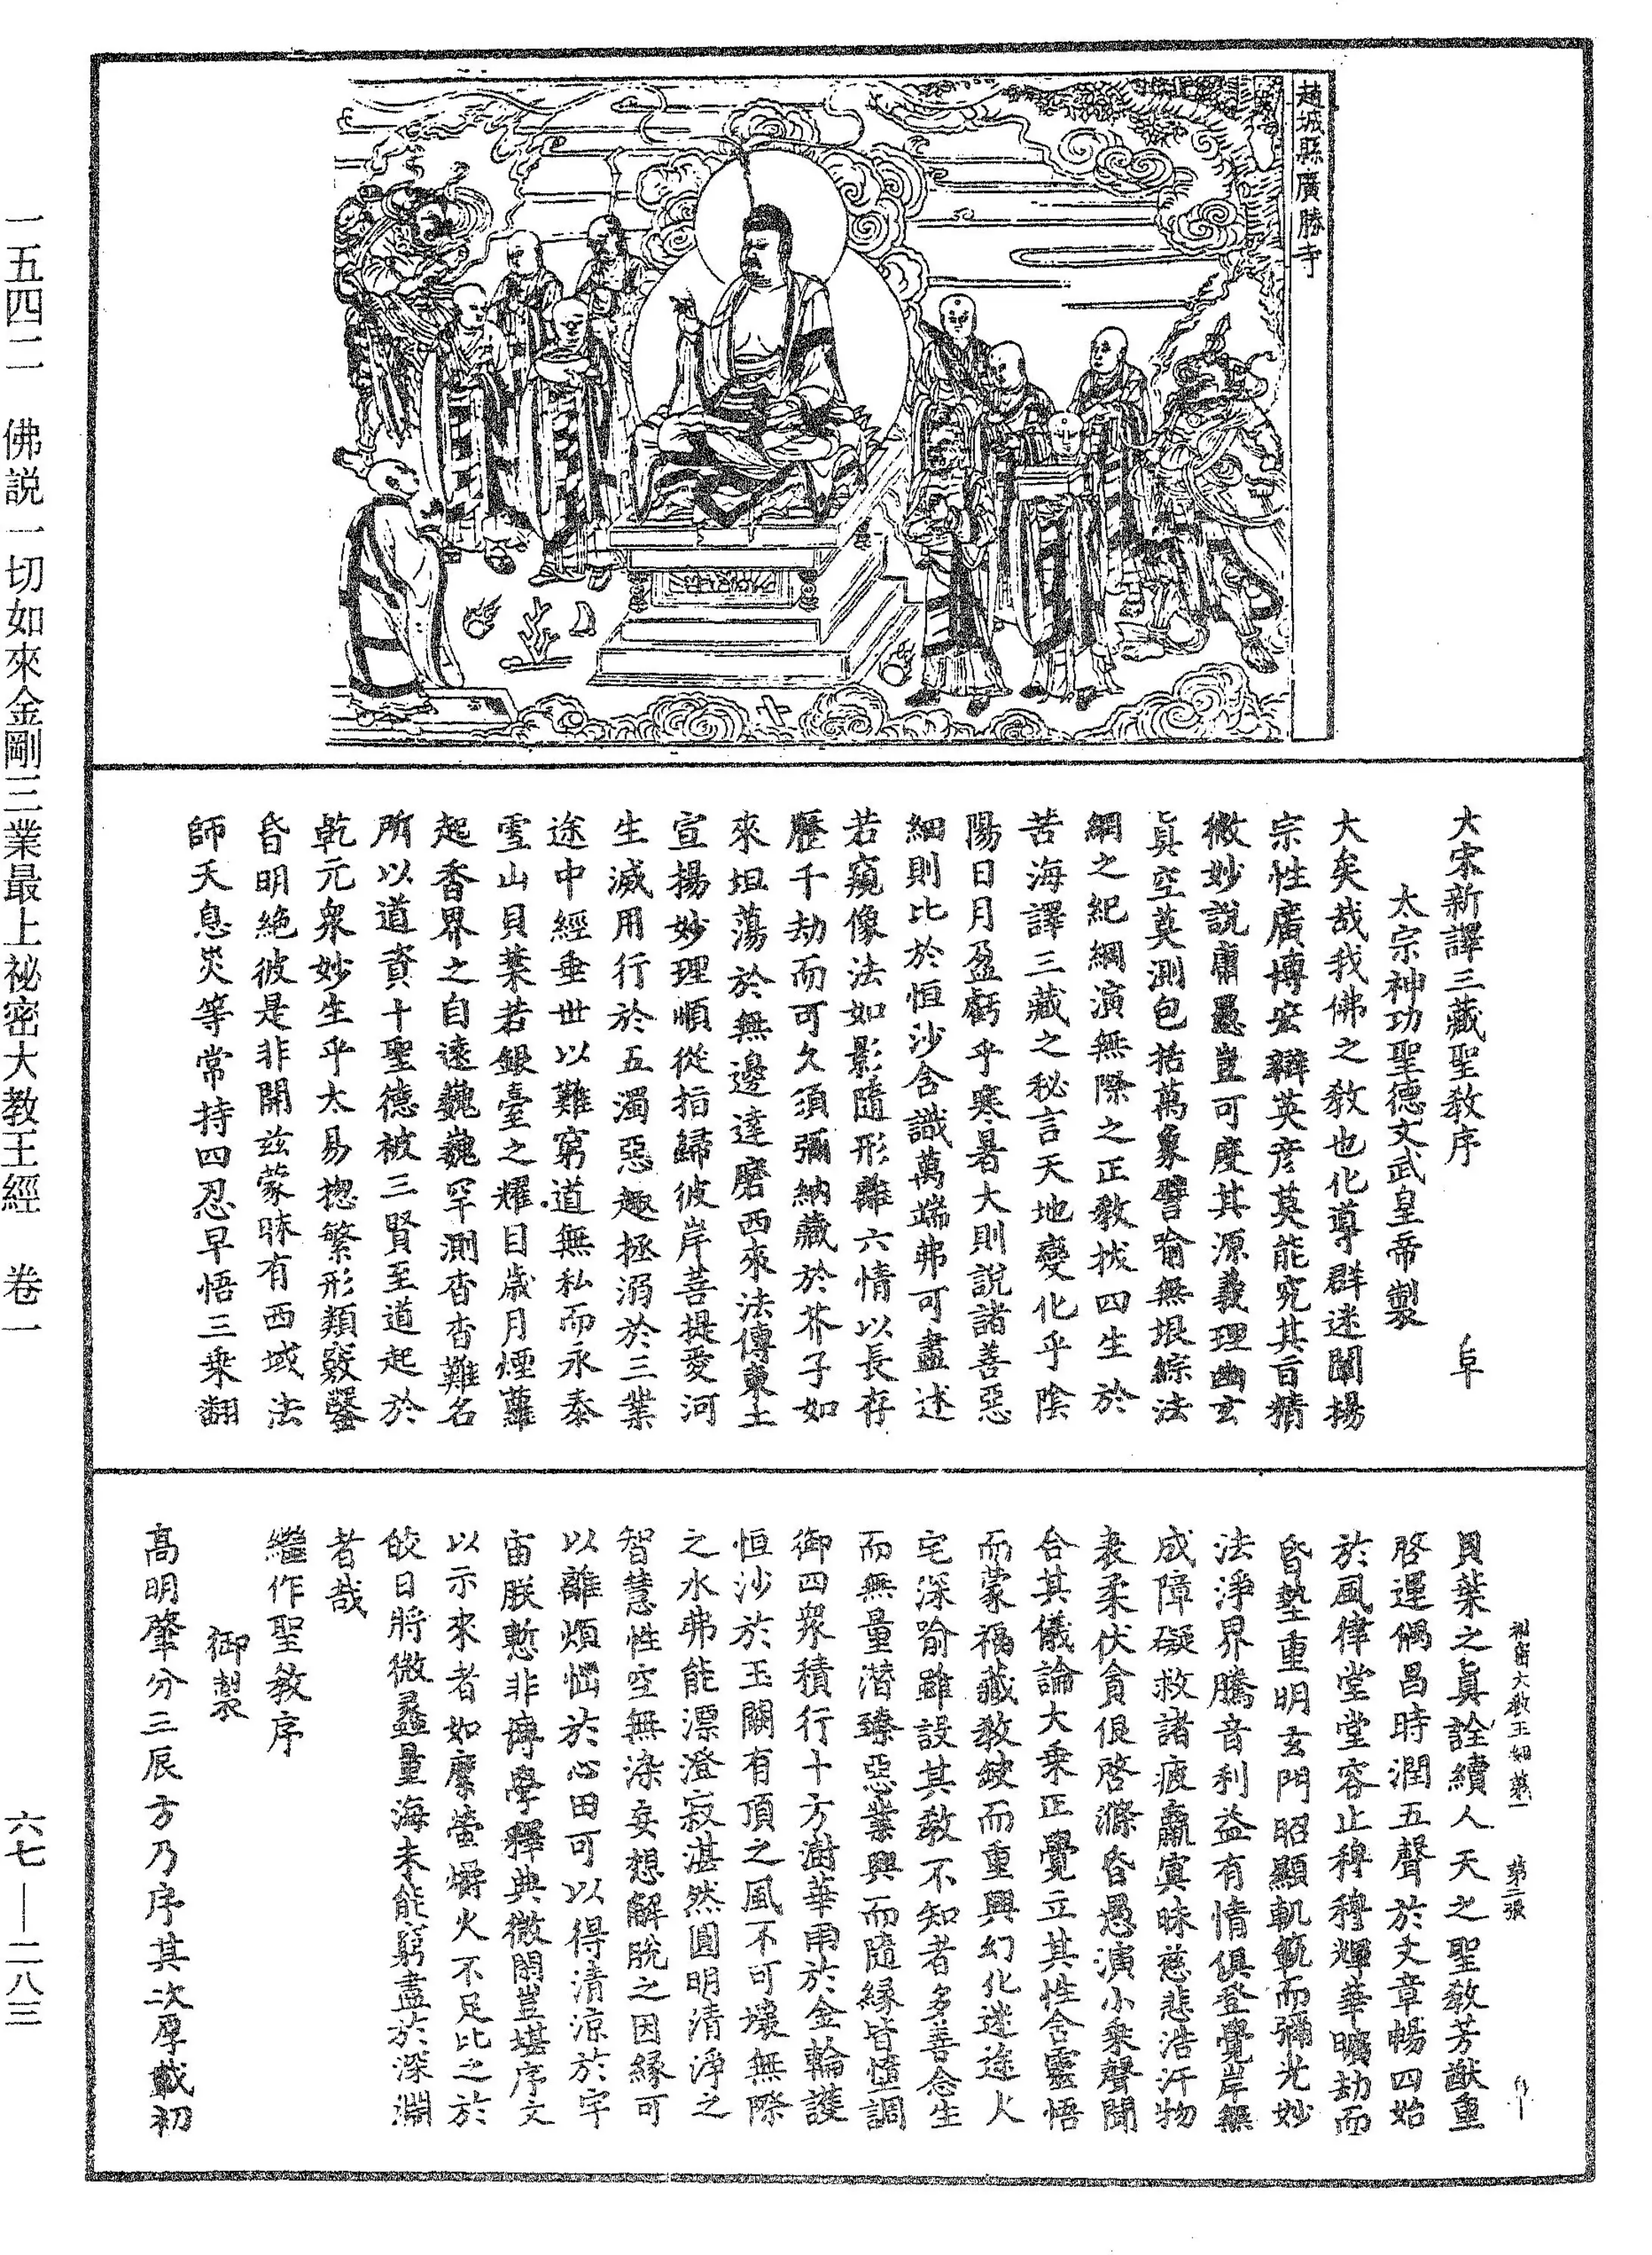 趙城縣廣勝寺
大宋新譯三藏聖敎序
卓
太宗神功聖德文武皇帝製
大矣哉我佛之敎也化導群迷闡揚
宗性廣博宏辯英彦莫能究其旨精
微妙說庸愚豈可度其源義理幽玄
眞空莫測包括萬象譬喻無垠綜法
網之紀綱演無際之正敎拔四生於
苦海譯三藏之秘言天地變化乎陰
陽日月盈虧乎寒暑大則說諸善惡
細則比於恒沙含識萬端弗可盡述
若窺像法如影隨形離六情以長存
歷千劫而可久須彌納藏於芥子如
來坦蕩於無邊達磨西來法傳東土
宣揚妙理順從指歸彼岸菩提愛河
生滅用行於五濁惡趣拯溺於三業
途中經垂世以難窮道無私而永泰
雪山貝葉若銀臺之耀目歲月煙蘿
起香界之自遠巍巍罕測杳杳難名
所以道資十聖德被三賢至道起於
乾元衆妙生乎太易揔繁形類竅鑿
昏明絶彼是非開兹蒙昧有西域法
師天息災等常持四忍早悟三乘翻
祕密大教王經卷一 第二張
貝葉之眞詮續人天之聖敎芳猷重
啓運偶昌時潤五聲於文章暢四始
於風律堂堂容止穆穆輝華曠劫而
昏墊重明玄門昭顯軌範而彌光妙
法淨界騰音利益有情俱登覺岸無
成障礙救諸疲羸冥昧慈悲浩汗物
表柔伏貪佷啓滌昏愚演小乘聲聞
合其儀論大乘正覺立其性含靈悟
而蒙福藏敎缺而重興幻化迷途火
宅深喻雖設其敎不知者多善念生
而無量潜臻惡業興而隨緣皆墮調
御四衆積行十方澍華雨於金輪護
恒沙於玉闕有頂之風不可壞無際
之水弗能漂澄寂湛然圓明清淨之
智慧性空無染妄想解脫之因緣可
以離煩惱於心田可以得清涼於宇
宙朕慙非博學釋典微閑豈堪序文
以示來者如縻螢爝火不足比之於
皎日將微蠡量海未能窮盡於深淵
者哉
繼作聖敎序
御製
高明肇分三辰方乃序其次厚載初
一五四二 佛説一切如來金剛三業最上祕密大教王經 卷一
六七—二八三